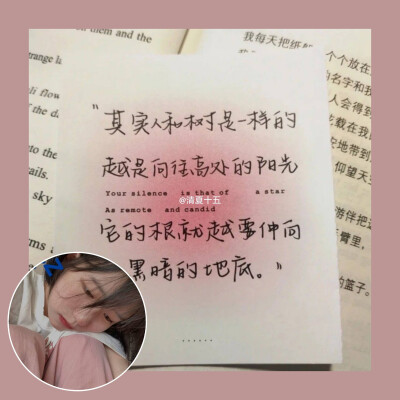 them and the
我每天把纸船
个个放在
的名字和我
人会得到
仰望天
游伴把这
臂里,
的篮子。
trails.
“其实人和树是一样的
越是向往高处的阳光
Your silence is that of a star
@清夏十五
As remote and candid
它的根就越要伸向
黑暗的地底。”
......